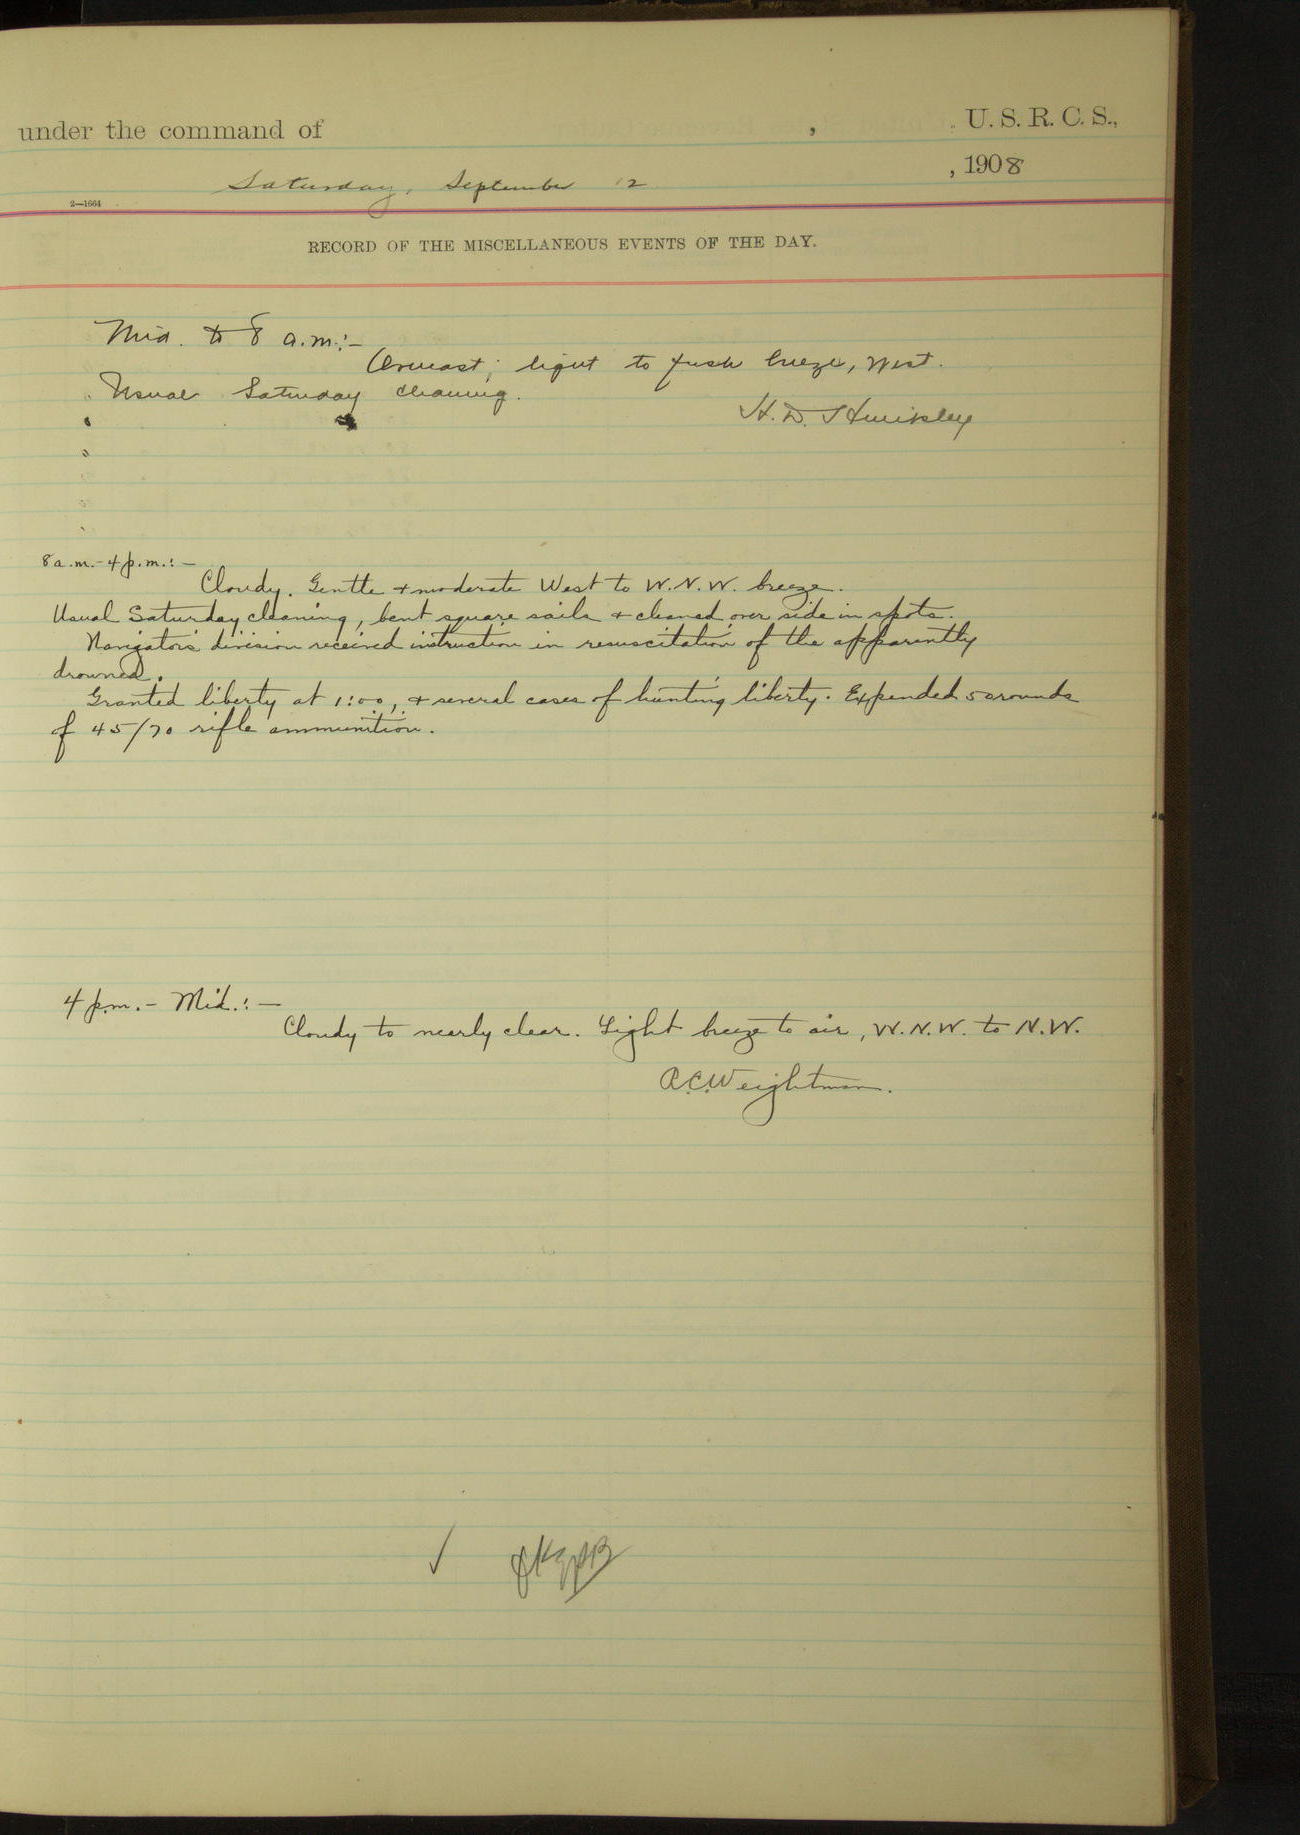 under the command of , U. S. R. C. S.,
, 1908
Saturday, September 12
2—1664
RECORD OF THE MISCELLANEOUS EVENTS OF THE DAY.
Mid. to 8 a.m.:—
Overcast; light to fresh breeze, West.
Usual Saturday cleaning.
H. D. Hinckley
8 a.m.-4 p.m.:—
Cloudy. Gentle + moderate West to W.N.W. breeze.
Usual Saturday cleaning, bent square sails + cleaned over side in spots.
Navigator's division received instruction in resuscitation of the apparently
drowned.
Granted liberty at 1:00, + several cases of hunting liberty. Expended 50 rounds
of 45/70 rifle ammunition.
4 p.m. - Mid.:—
Cloudy to nearly clear. Light breeze to air, W.N.W. to N.W.
R.C. Weightman.